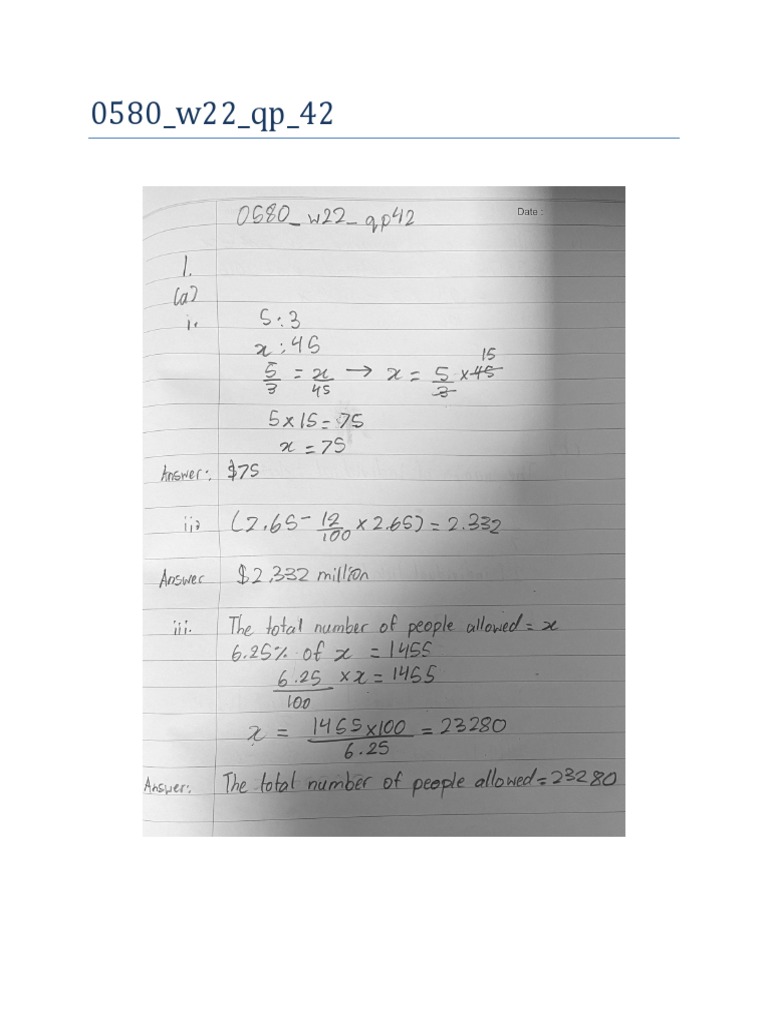 0580_w22_qp_42
0580_w22_qp42
Date :
1.
(a)
i. 5:3
x:45
5/3 = x/45 → x = 5/3 × 45 15
5×15=75
x=75
Answer: $75
ii. (2.65 - 12/100 × 2.65) = 2.332
Answer $2.332 million
iii. The total number of people allowed = x
6.25% of x = 1455
6.25/100 × x = 1455
x = 1455×100/6.25 = 23280
Answer: The total number of people allowed = 23280